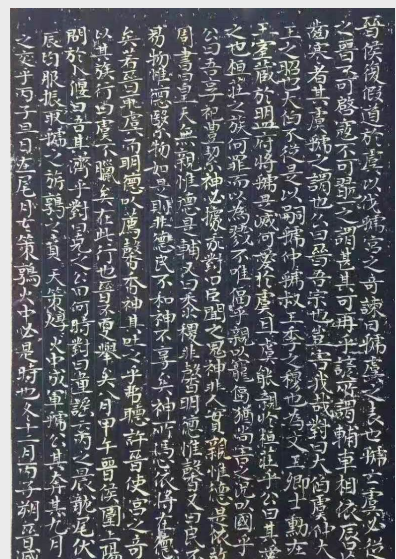 晉侯復假道於虞以伐虢宮之奇諫曰虢虞之表也虢亡虞必從
之晉不可啓寇不可翫之謂其其可再乎諺所謂輔車相依脣亡
齒寒者其虞虢之謂也公曰晉吾宗也豈害我哉對曰大伯虞仲大
王之昭也大伯不從是以嗣虢仲虢叔王季之穆也為文王卿士勳在
王室藏於盟府將虢是滅何愛於虞且虞能親於桓莊乎公曰其愛
之也桓莊之族何罪而以為戮不唯偪乎親以寵偪猶尚害之況以國乎
公曰吾享祀豐絜神必據我對曰臣聞之鬼神非人實親惟德是依故
周書曰皇天無親惟德是輔又曰黍稷非馨明德惟馨又曰民不
易物惟德繄物如是則非德民不和神不享矣神所馮依將在德
矣若晉取虞而明德以薦馨香神其吐之乎弗聽許晉使宮之奇
以其族行曰虞不臘矣在此行也晉不更舉矣八月甲午晉侯圍上陽
問於卜偃曰吾其濟乎對曰克之公曰何時對曰童謠云丙之晨龍尾伏
辰均服振取虢之旂鶉之賁天策焞火中成軍虢公其奔其九月
之交乎丙子旦日在尾月在策鶉火中必是時也冬十二月丙子朔晉滅